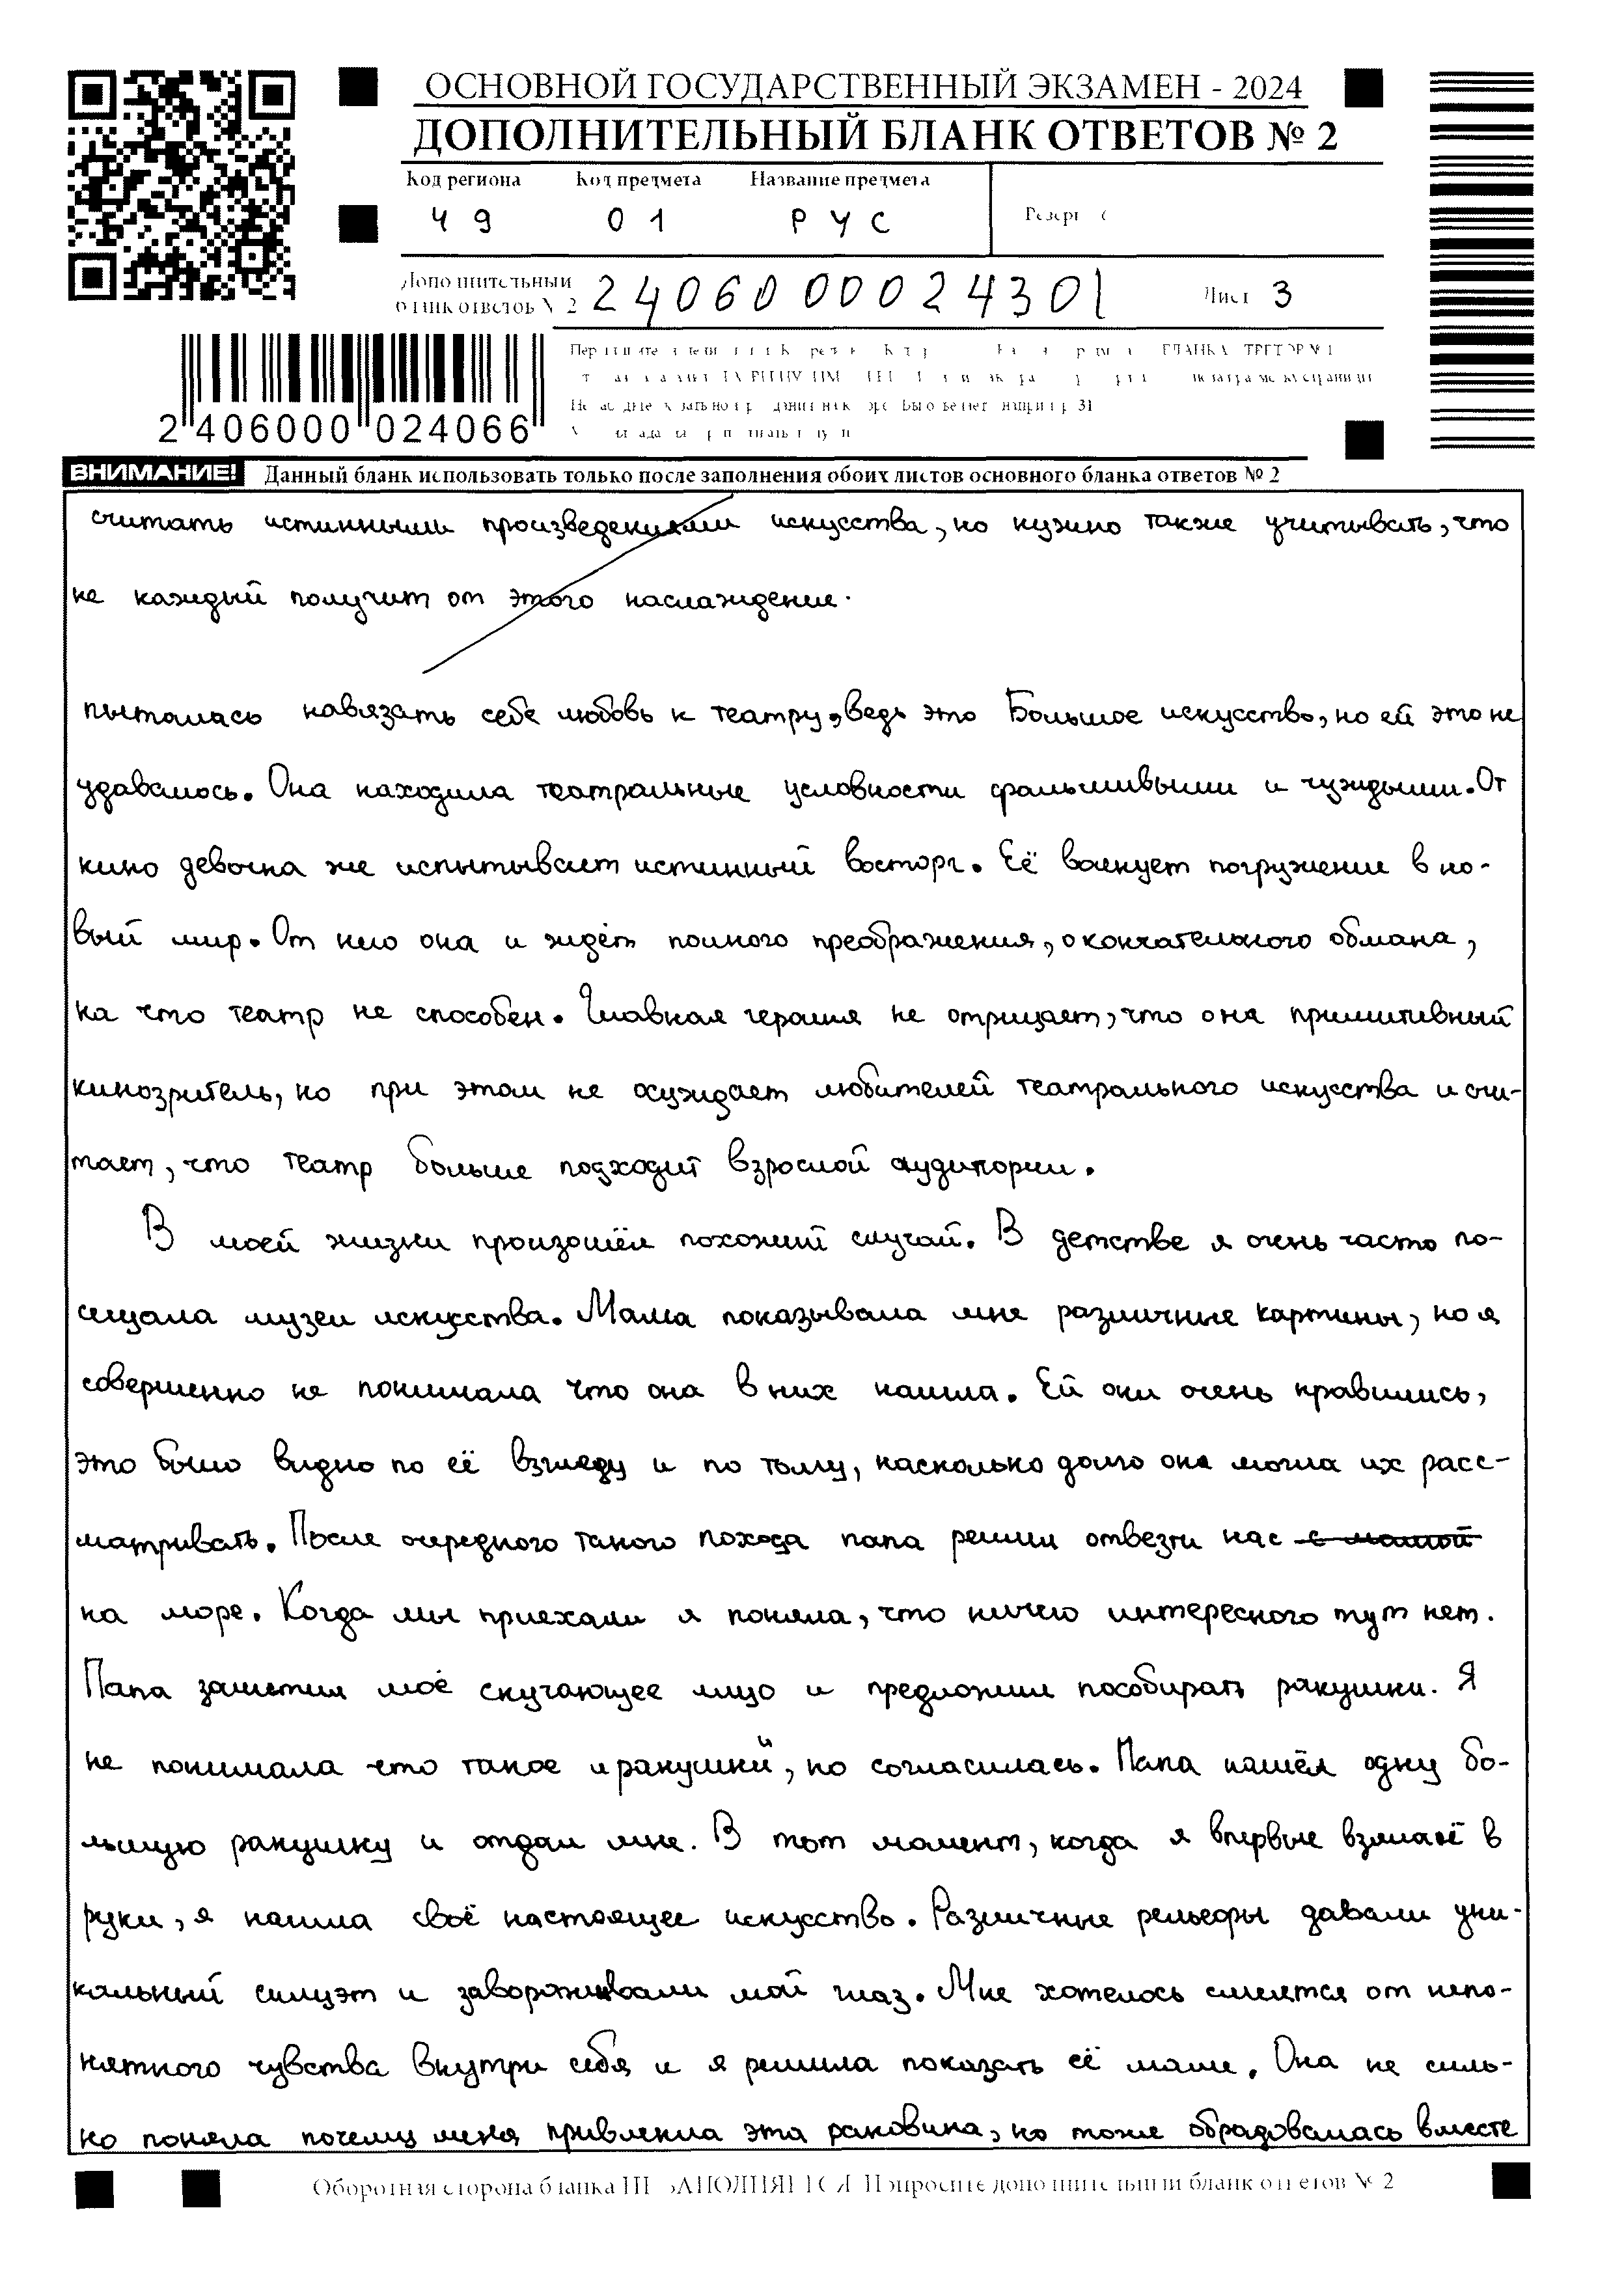 ОСНОВНОЙ ГОСУДАРСТВЕННЫЙ ЭКЗАМЕН - 2024
ДОПОЛНИТЕЛЬНЫЙ БЛАНК ОТВЕТОВ № 2
Код региона Код предмета Название предмета
49 01 РУС Резерв
Дополнительный
бланк ответов № 2 2406000024301 Лист 3
2 406000 024066
ВНИМАНИЕ! Данный бланк использовать только после заполнения обоих листов основного бланка ответов № 2
считать истинными произведениями искусства, но нужно также учитывать, что
не каждый получит от этого наслаждение.
пыталась навязать себе любовь к театру, ведь это Большое искусство, но ей это не
удавалось. Она находила театральные условности фальшивыми и чуждыми. От
кино девочка же испытывает истинный восторг. Её волнует погружение в но-
вый мир. От него она и ждёт полного преображения, окончательного обмана,
на что театр не способен. Главная героиня не отрицает, что она примитивный
кинозритель, но при этом не осуждает любителей театрального искусства и счи-
тает, что театр больше подходит взрослой аудитории.
В моей жизни произошёл похожий случай. В детстве я очень часто по-
сещала музеи искусства. Мама показывала мне различные картины, но я
совершенно не понимала что она в них нашла. Ей они очень нравились,
это было видно по её взгляду и по тому, насколько долго она могла их расс-
матривать. После очередного такого похода папа решил отвезти нас с мамой
на море. Когда мы приехали я поняла, что ничего интересного тут нет.
Папа заметил моё скучающее лицо и предложил пособирать ракушки. Я
не понимала что такое ракушки, но согласилась. Папа нашёл одну бо-
льшую ракушку и отдал мне. В тот момент, когда я впервые взяла её в
руки, я нашла своё настоящее искусство. Различные рельефы давали уни-
кальный силуэт и завораживали мой глаз. Мне хотелось смеятся от непо-
нятного чувства внутри себя и я решила показать её маме. Она не силь-
но поняла почему меня привлекла эта раковина, но тоже обрадовалась вместе
Оборотная сторона бланка НЕ ЗАПОЛНЯЕТСЯ. Попросите дополнительный бланк ответов № 2